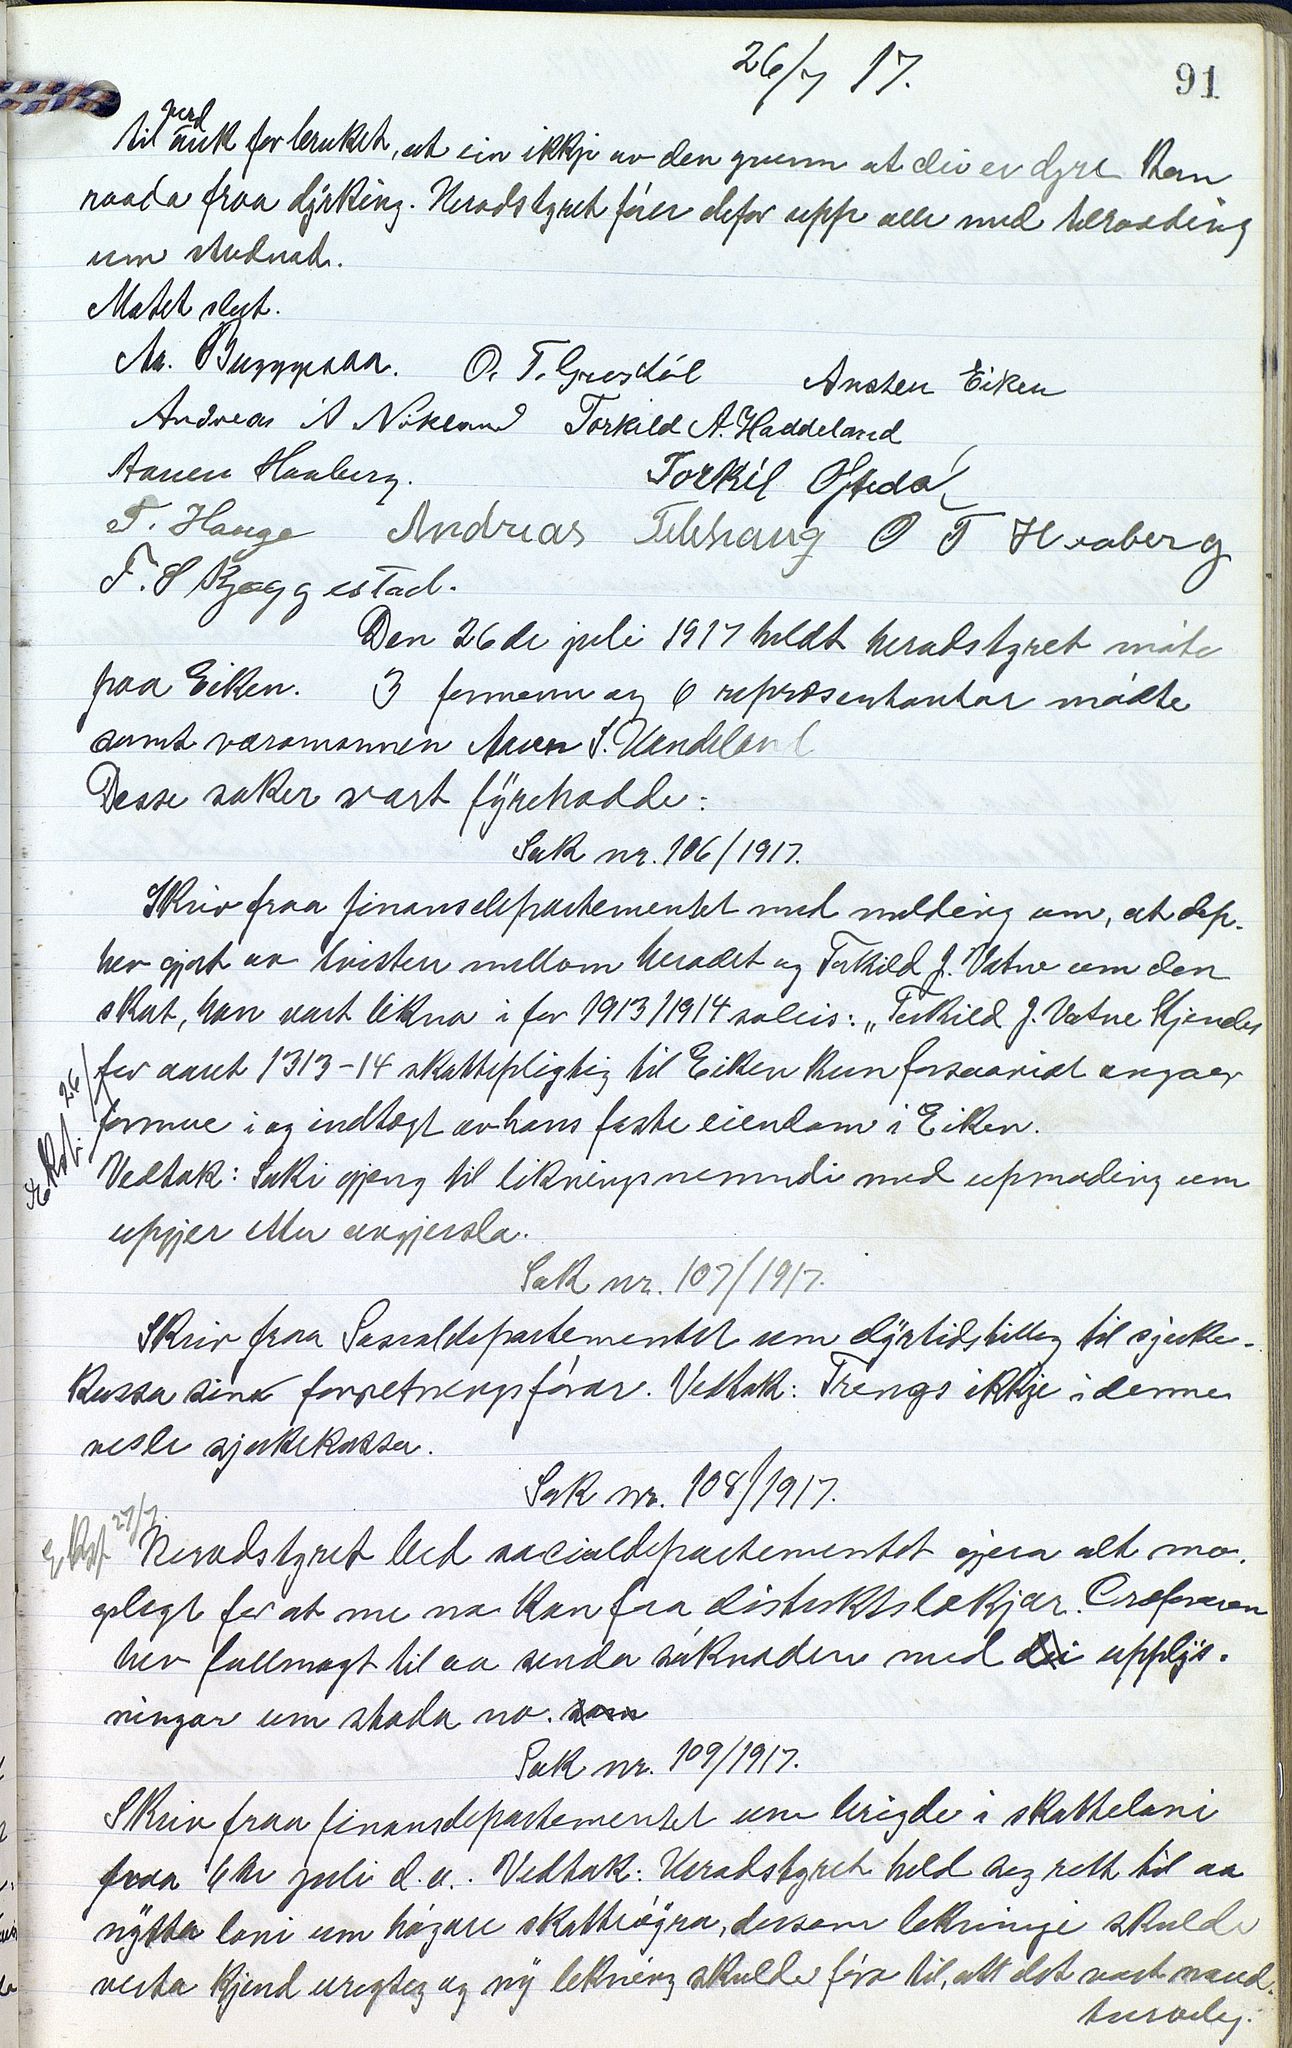 26/7 17.
91
til verd
auk for bruket, at ein ikkje av den grunn at dei er dyre kan
raada fraa dyrking. Heradstyret fører defor upp alle med tilraading
um studnad.
Møtet slut.
O. T. Gresdal Ansten Eiken
Andreas A Nökland Torkild A. Haddeland
Aanen Haaberg. Torkil Oftedal
T. Hauge Andreas Telhaug O T Haaberg
T. S Bjeggestad.
Den 26de juli 1917 heldt heradstyret møte
paa Eiken. 3 formenn og 6 repræsentantar mødte
samt varamannen Aanen S. Vendeland
Desse saker vart fyrehadde:
Sak nr. 106/1917.
Skriv fraa finansdepartementet med melding um, at dep.
hev gjort av tvisten millom heradet og Torkild J. Vatne um den
skat, han vart likna i for 1913/1914 soleis: „Torkild J. Vatne kjendes
for aaret 1313-14 skattepligtig til Eiken kun forsaavidt angaar
formue i og indtægt av hans faste eiendom i Eiken.
Ekst. 26/
Vedtak: Saki gjeng til likningsnemndi med upmoding um
upgjer etter avgjersla.
Sak nr. 107/1917.
Skriv fraa Sosialdepartementet um dyrtidstillegg til sjuke-
kassa sine forretningsførar. Vedtak: Trengs ikkje i denne
vesle sjukekassa.
Sak nr. 108/1917.
Ekst 27/7.
Heradstyret bed socialdepartementet gjera alt mo-
glegt for at me no kan faa distriktslækjar. Ordføraren
hev fullmagt til aa senda søknaden med dei upplys-
ningar um stoda no. som
Sak nr. 109/1917.
Skriv fraa finansdepartementet um brigde i skatteloni
fraa 6te juli d. a.. Vedtak: Heradstyret held seg rett til aa
nytta loni um høgare skattøyra, dersom likningi skulde
verta kjend urigtig og ny likning skulde føra til, att det vart naud-
turvleg.